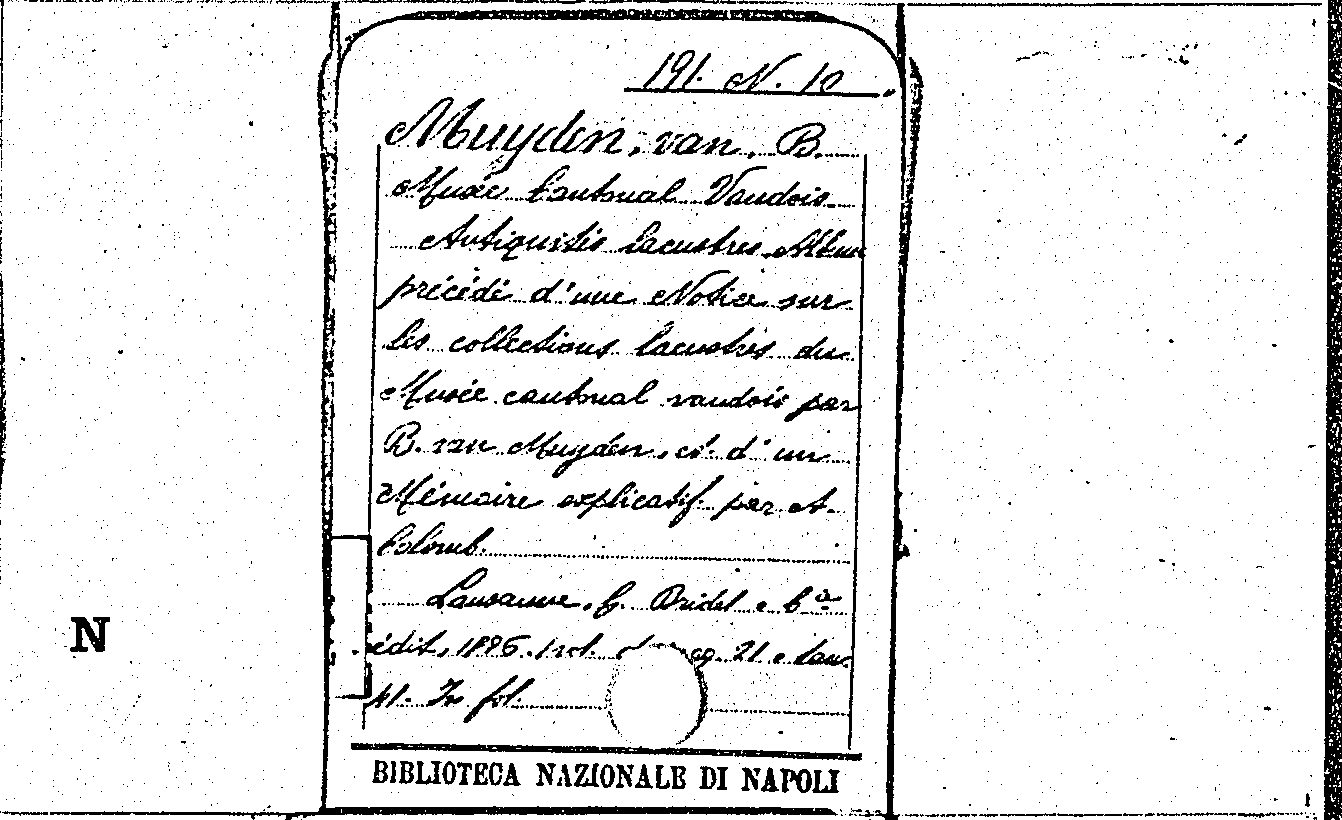 191. N. 10
Muyden, van, B.
Musée Cantonal Vaudois.
Antiquités lacustres. Album
précédé d'une Notice sur
les collections lacustres du
Musée cantonal vaudois par
B. van Muyden, et d'un
Mémoire explicatif par A.
Colomb.
Lausanne, G. Bridel e C.ie
édit., 1896. 1 vol. di pag. 21 e tav.
41. In fol.
N
BIBLIOTECA NAZIONALE DI NAPOLI